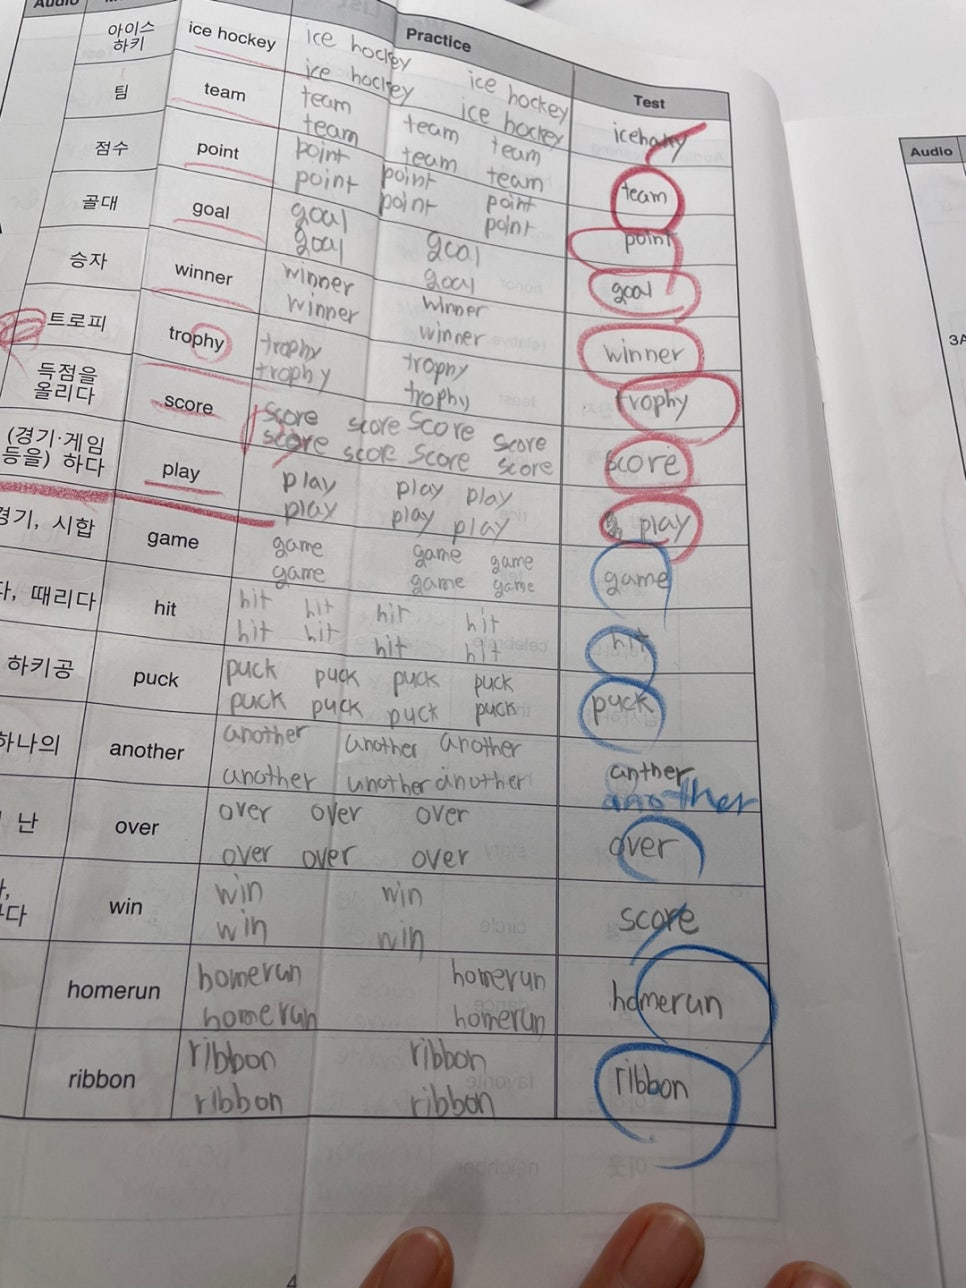 Audio
Practice
Test
아이스
하키
ice hockey
ice hockey
ice hockey
ice hockey
ice hockey
팀
team
team team team
team team team
team
점수
point
point point point
point point point
point
골대
goal
goal goal
goal goal
goal
승자
winner
winner winner
winner winner
winner
트로피
trophy
trophy trophy
trophy trophy
trophy
득점을
올리다
score
score score score score
score score score score
score
(경기·게임
등을) 하다
play
play play play
play play play
play
경기, 시합
game
game game game
game game game
game
다, 때리다
hit
hit hit hit hit
hit hit hit hit
hit
하키공
puck
puck puck puck puck
puck puck puck puck
puck
하나의
another
another another another
another another another
anther
another
난
over
over over over
over over over
over
win
win win
win win
score
homerun
homerun homerun
homerun homerun
homerun
ribbon
ribbon ribbon
ribbon ribbon
ribbon
4
Audio
3A